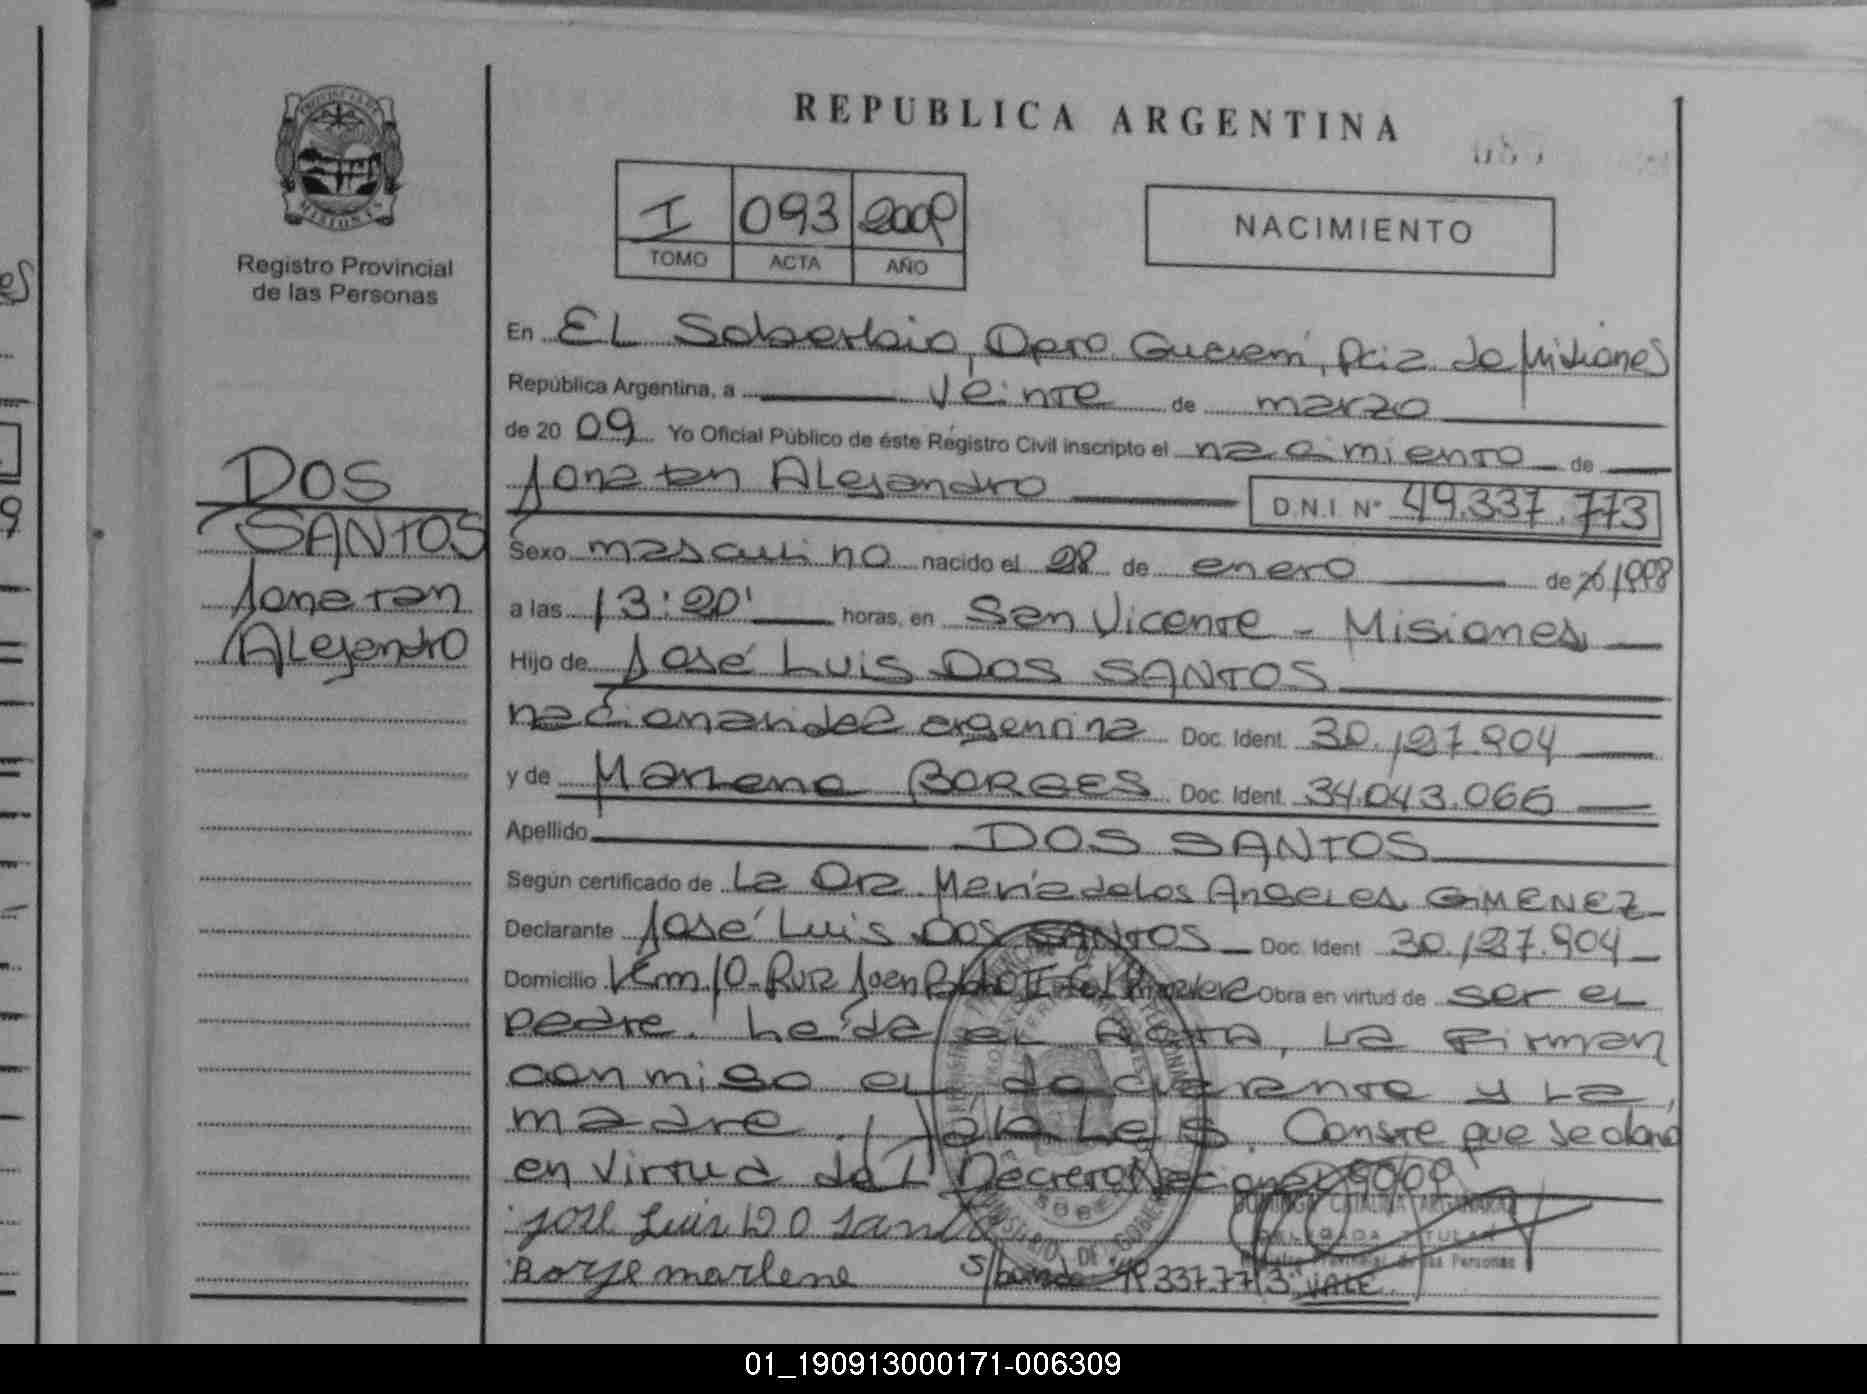 REPUBLICA ARGENTINA
I 093 2009
TOMO ACTA AÑO
NACIMIENTO
Registro Provincial
de las Personas
DOS
SANTOS
Jonatan
Alejandro
En El Soberbio, Dpto Guaraní, Pcia de Misiones
República Argentina, a veinte de marzo
de 20 09 Yo Oficial Público de éste Registro Civil inscripto el nacimiento de
Jonatan Alejandro D.N.I. Nº 49.337.773
Sexo masculino nacido el 28 de enero de 1998
a las 13:20' horas, en San Vicente - Misiones
Hijo de José Luis DOS SANTOS
nacionalidad argentina Doc. Ident. 30.127.904
y de Marlene BORGES Doc. Ident. 34.043.066
Apellido DOS SANTOS
Según certificado de La Dra María de los Angeles GIMENEZ
Declarante José Luis DOS SANTOS Doc. Ident 30.127.904
Domicilio Km 10 - Ruta Juan Pablo II Obra en virtud de ser el
padre. Leída el Acta, la firman
conmigo el declarante y la
madre. Conste que se labra
en virtud del Decreto Nacional 90/09
José Luis DO Santo
Borge marlene 49.337.773 VALE
DELEGADA TITULAR
01_190913000171-006309